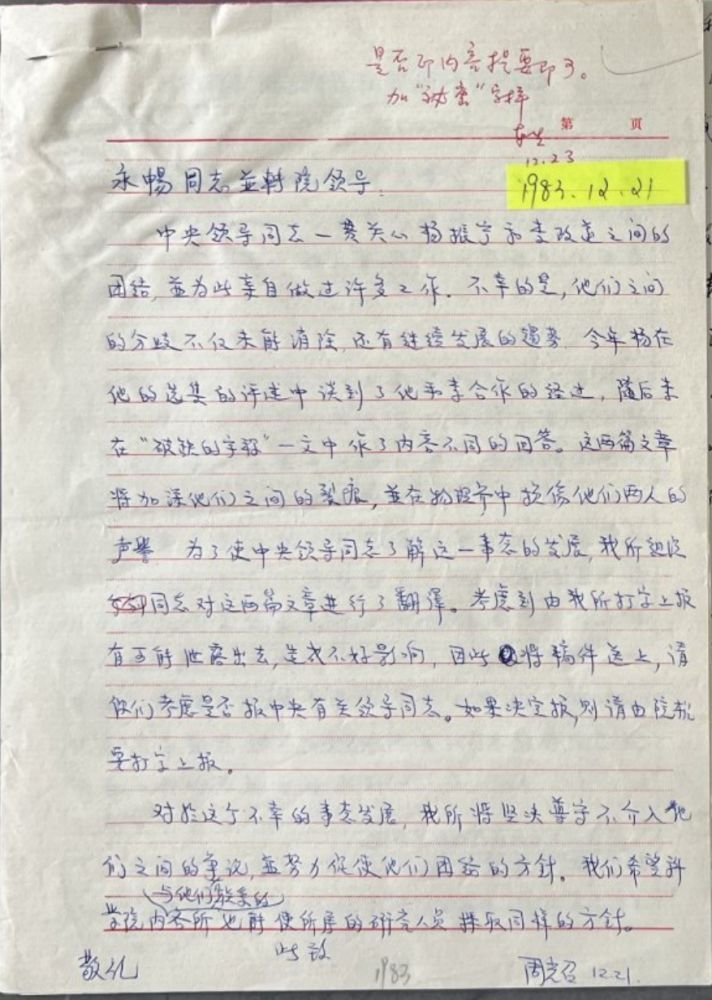 是否印内容提要即可。
加“秘密”字样
12.23
第 页
永畅同志并转院领导:
1983.12.21
中央领导同志一贯关心杨振宁和李政道之间的
团结,並为此亲自做过许多工作.不幸的是,他们之间
的分歧不仅未能消除,还有继续发展的趋势 今年杨在
他的选集的评述中谈到了他和李合作的经过,随后李
在“破缺的宇称”一文中作了内容不同的回答。这两篇文章
将加深他们之间的裂痕,並在物理界中损伤他们两人的
声誉 为了使中央领导同志了解这一事态的发展,我所
同志对这两篇文章进行了翻譯。考虑到由我所打字上报
有可能泄露出去,造成不好影响,因此将稿件送上,请
你们考虑是否报中央有关领导同志。如果决定报,则请由院机
要打字上报。
对於这个不幸的事态发展,我所将坚决遵守不介入他
们之间的争论,並努力促使他们团结的方针。我们希望科
与他们有联系的
学院内各所也能使所属的研究人员採取同样的方针。
此致
敬礼
1983
周光召 12.21.